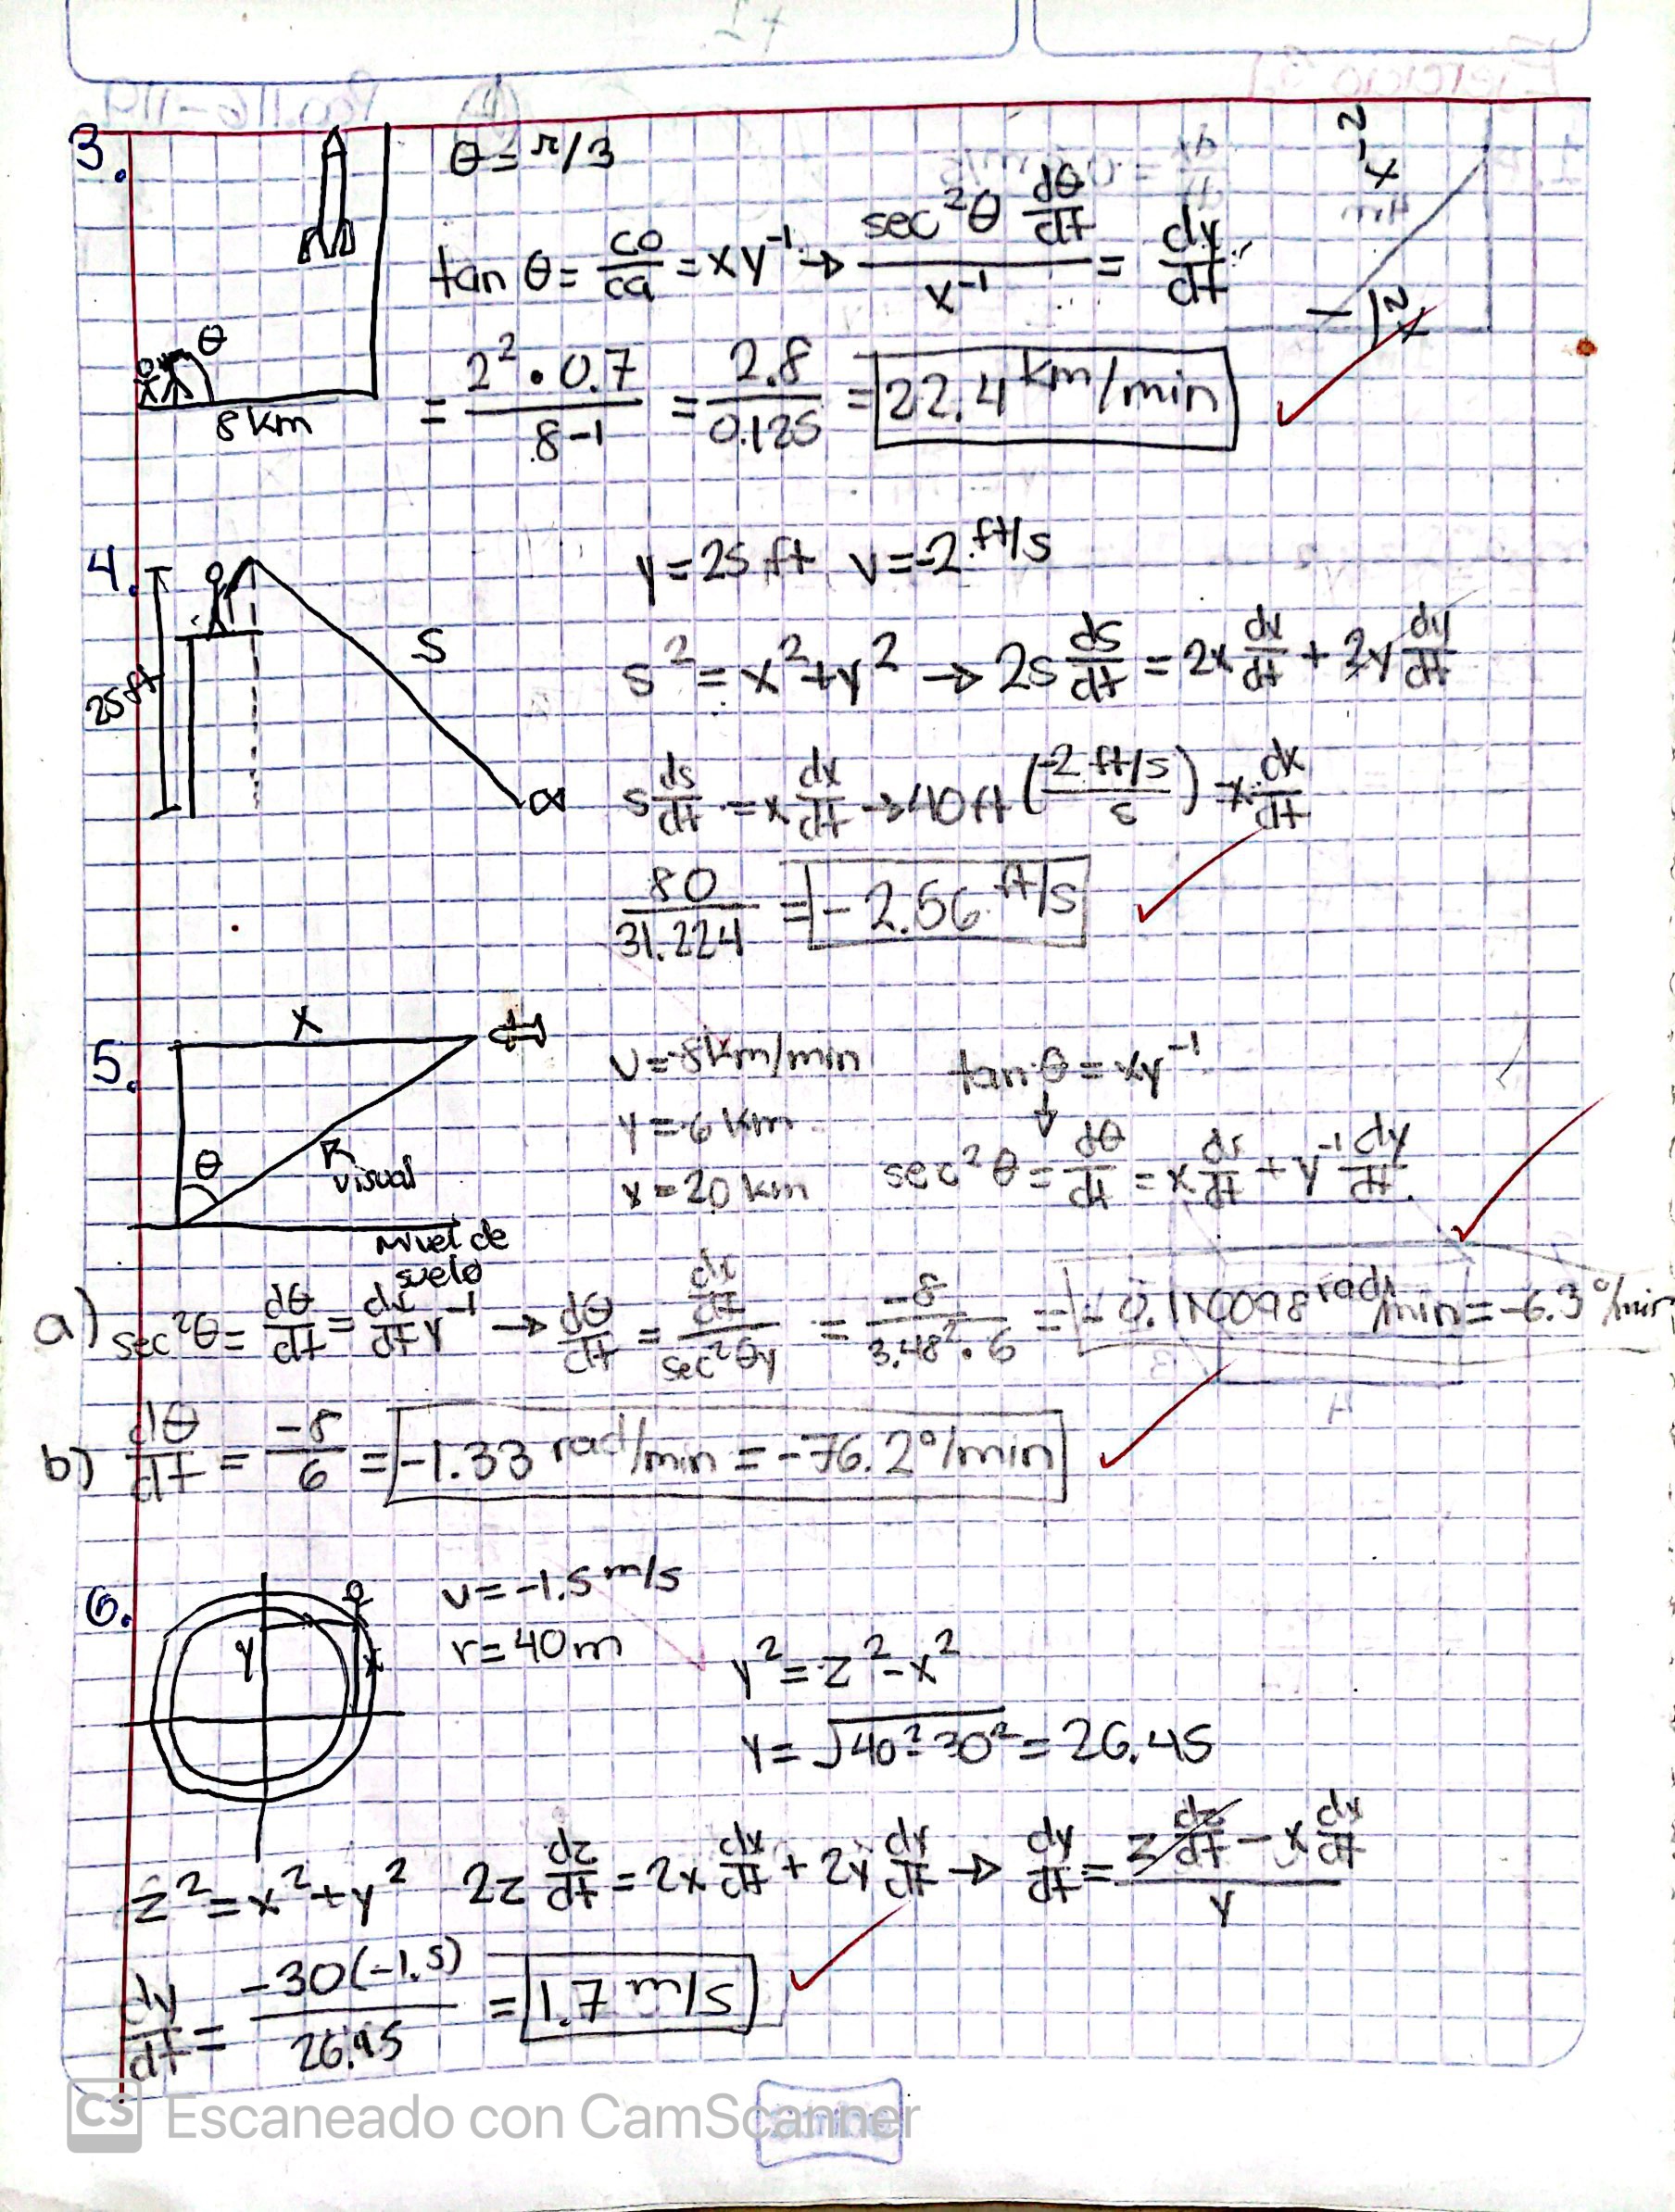 3.
θ = π/3
tan θ = co/ca = xy⁻¹ → sec²θ dθ/dt / x⁻¹ = dy/dt
θ
8 km
= 2² • 0.7 / 8⁻¹ = 2.8 / 0.125 = 22.4 km/min
4.
y = 25 ft v = -2 ft/s
25 ft
S
s² = x² + y² → 2s ds/dt = 2x dx/dt + 2y dy/dt
s ds/dt = x dx/dt → 40 ft (-2 ft/s / s) = x dx/dt
80 / 31.224 = - 2.56 ft/s
5.
x
θ
R visual
nivel de suelo
v = -8 km/min tan θ = xy⁻¹
y = 6 km
x = 20 km sec²θ = dθ/dt = x dx/dt + y⁻¹ dy/dt
a) sec²θ = dθ/dt = dx/dt y⁻¹ → dθ/dt = dx/dt / sec²θy = -8 / 3.48² • 6 = - 0.110098 rad/min = -6.3 °/min
b) dθ/dt = -8/6 = -1.33 rad/min = -76.2°/min
6.
y
x
v = -1.5 m/s
r = 40 m
y² = z² - x²
y = √40² - 30² = 26.45
z² = x² + y² 2z dz/dt = 2x dx/dt + 2y dy/dt → dy/dt = z dz/dt - x dx/dt / y
dy/dt = -30(-1.5) / 26.45 = 1.7 m/s
CS Escaneado con CamScanner